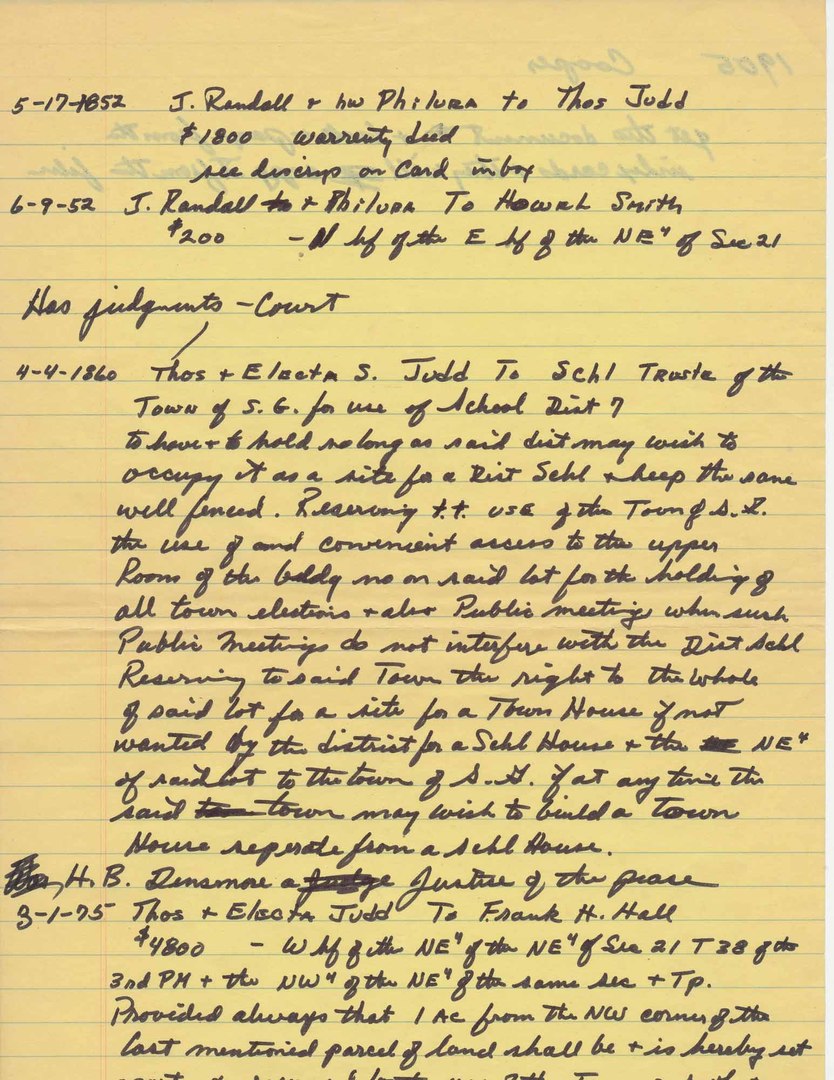 5-17-1852 J. Randall + hw Philura to Thos Judd
$1800 warrenty deed
see discrip on Card in box
6-9-52 J. Randall + Philura To Howah Smith
$200 - N hf of the E hf of the NE" of Sec 21
Has judgments - Court
4-4-1860 Thos + Electa S. Judd To Schl Truste of the
Town of S. G. for use of School Dist 7
to have + to hold so long as said dist may wish to
occupy it as a site for a Dist Schl + keep the same
well fenced. Reserving t.t. use of the Town of S.G.
the use of and convenient access to the upper
Room of the bddg no on said lot for the holding of
all town elections + also Public meetings when such
Public Meetings do not interfere with the Dist Schl
Reserving to said Town the right to the whole
of said lot for a site for a Town House if not
wanted by the district for a Schl House + the NE"
of said lot to the town of S.G. if at any time the
said town may wish to build a Town
House seperate from a schl House.
H. B. Densmore a Justice of the pease
3-1-75 Thos + Electa Judd To Frank H. Hall
$4800 - W hf of the NE" of the NE" of Sec 21 T 38 of the
3rd PM + the NW" of the NE" of the same sec + Tp.
Provided always that 1 Ac from the NW corner of the
last mentioned parcel of land shall be + is hereby set